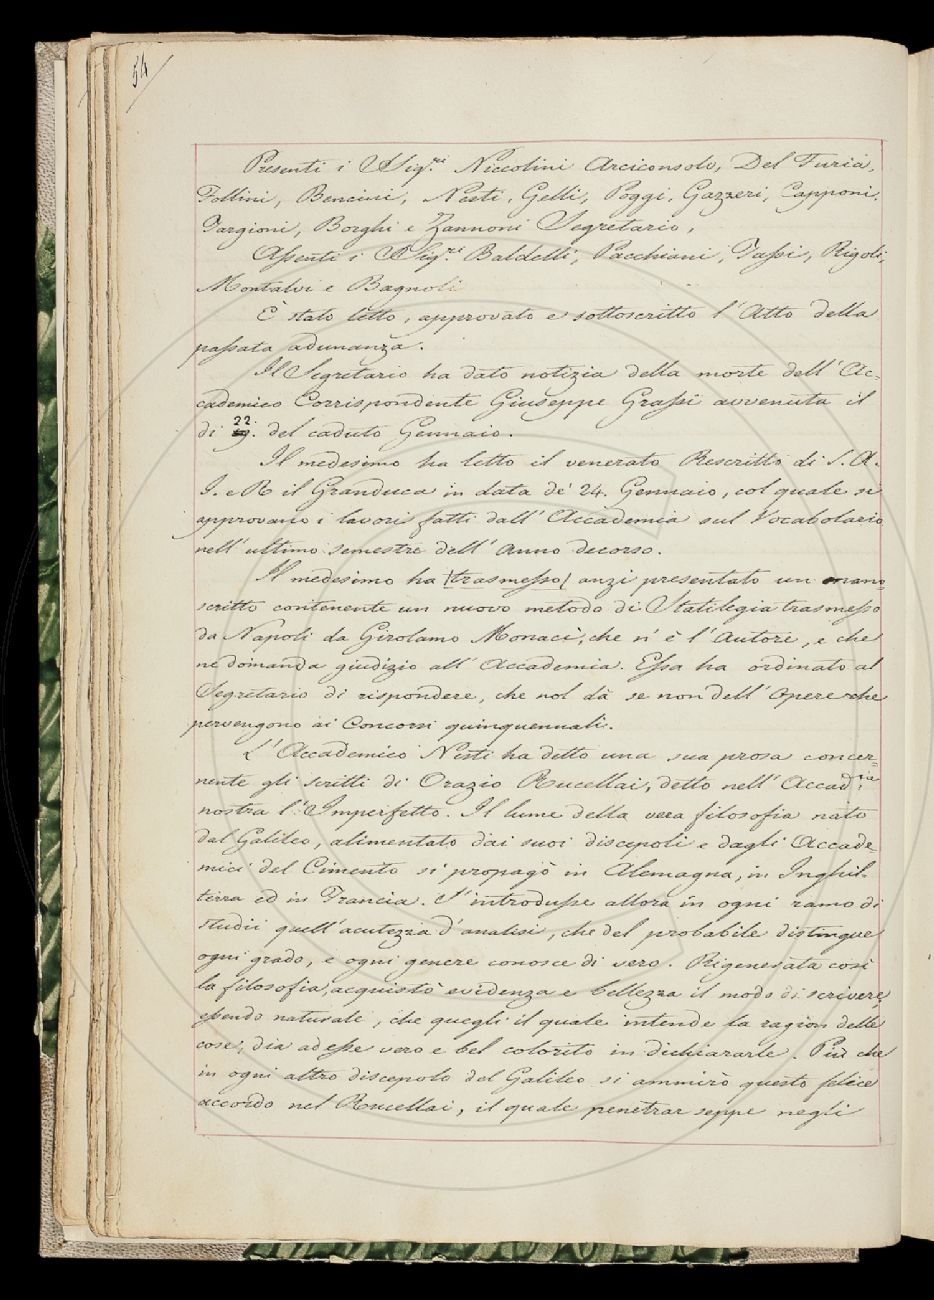 54
Presenti i SSig.ri Niccolini Arciconsolo, Del Furia,
Follini, Bencini, Nesti, Gelli, Poggi, Gazzeri, Capponi,
Targioni, Borghi e Zannoni Segretario,
Assenti i SSig.ri Baldelli, Pacchiani, Tassi, Rigoli,
Montalvi e Bagnoli
È stato letto, approvato e sottoscritto l'Atto della
passata adunanza.
Il Segretario ha dato notizia della morte dell'Ac=
cademico Corrispondente Giuseppe Grassi avvenuta il
di 22. del caduto Gennaio.
Il medesimo ha letto il venerato Rescritto di S. A.
I. e R il Granduca in data de' 24. Gennaio, col quale si
approvano i lavori fatti dall'Accademia sul Vocabolario
nell'ultimo semestre dell'anno decorso.
Il medesimo ha (trasmesso) anzi presentato un mano
scritto contenente un nuovo metodo di Statilegia trasmesso
da Napoli da Girolamo Monaci, che n'è l'Autore, e che
ne domanda giudizio all'Accademia. Essa ha ordinato al
Segretario di rispondere, che nol dà se non dell'Opere che
pervengono ai Concorsi quinquennali.
L'Accademico Nesti ha detto una sua prosa concer=
nente gli scritti di Orazio Rucellai, detto nell'Accad.ia
nostra l'Imperfetto. Il lume della vera filosofia nato
dal Galileo, alimentato dai suoi discepoli e dagli Accade=
mici del Cimento si propagò in Alemagna, in Inghil=
terra ed in Francia. S'introdusse allora in ogni ramo di
studii quell'acutezza d'analisi, che del probabile distingue
ogni grado, e ogni genere conosce di vero. Rigenerata così
la filosofia, acquistò evidenza e bellezza il modo di scrivere,
essendo naturale, che quegli il quale intende la ragion delle
cose, dia ad esse vero e bel colorito in dichiararle. Più che
in ogni altro discepolo del Galileo si ammirò questo felice
accordo nel Rucellai, il quale penetrar seppe negli